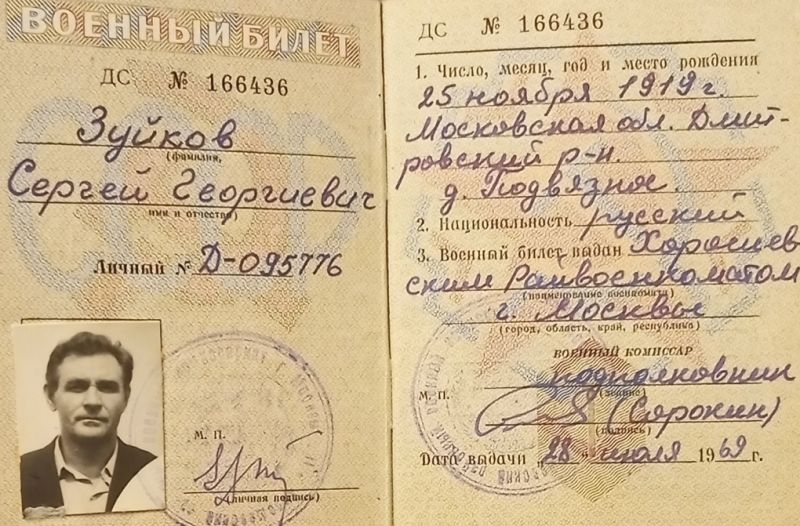 ВОЕННЫЙ БИЛЕТ
ДС № 166436
Зуйков
(фамилия,
Сергей Георгиевич
имя и отчество)
Личный № Д-095776
М. П.
(личная подпись)
ДС № 166436
1. Число, месяц, год и место рождения
25 ноября 1919 г.
Московская обл. Дмит-
ровский р-н.
д. Подвязное.
2. Национальность русский
3. Военный билет выдан Хорошев
ским Райвоенкоматом
(наименование военкомата)
г. Москвы
(город, область, край, республика)
ВОЕННЫЙ КОМИССАР
подполковник
М. П.
(звание)
(Сорокин)
(подпись)
Дата выдачи „28" июля 1969 г.